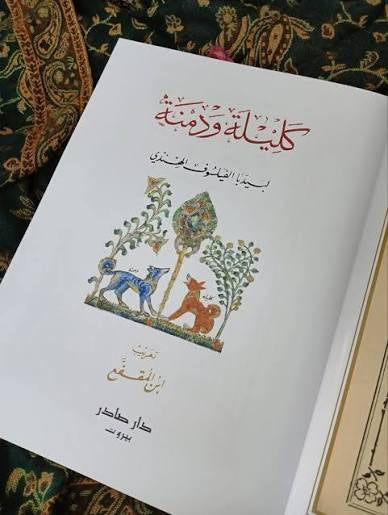 كَلِيْلَة وَدِمْنَة
لبيدبا الفيلسوف الهندي
دمنة
كليلة
تعريب
ابن المقفّع
دار صادر
بيروت